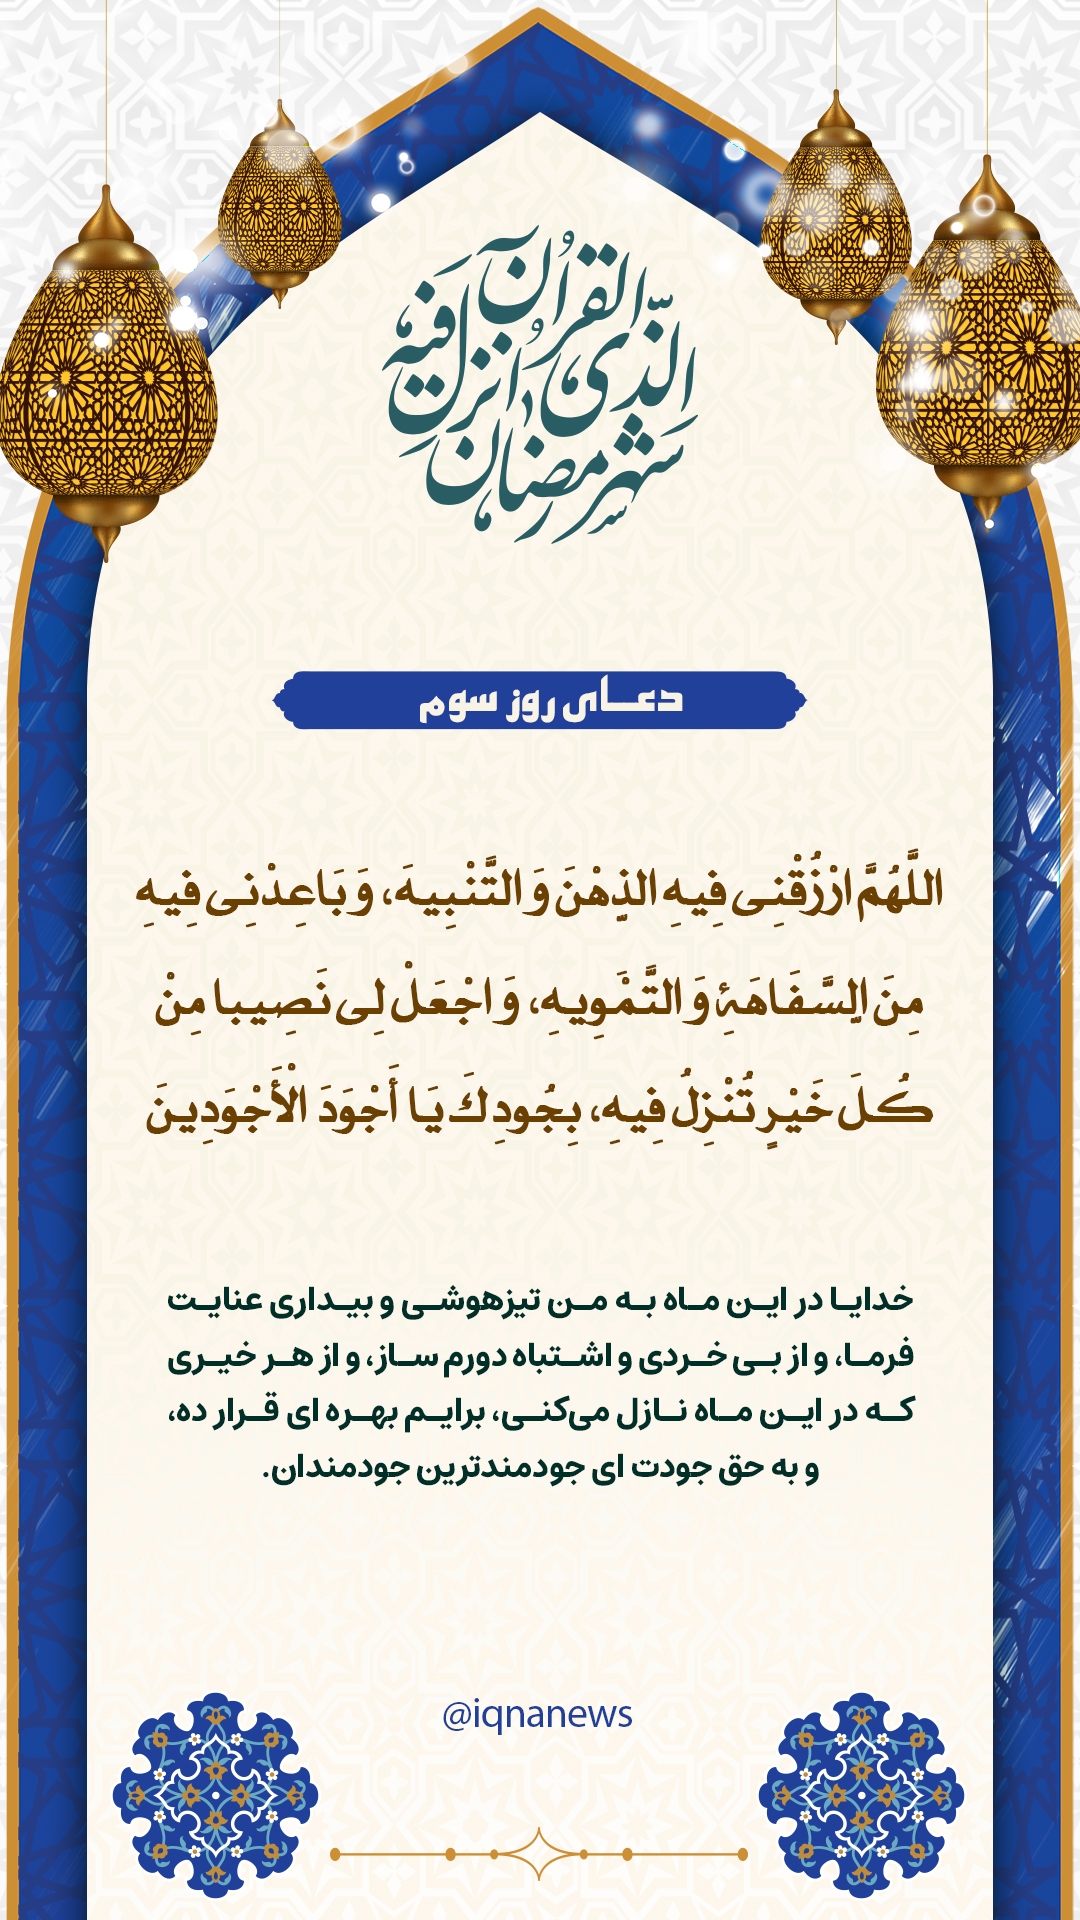 شهر رمضان الذی انزل فیه القرآن
دعای روز سوم
اللَّهُمَّ ارْزُقْنِی فِیهِ الذِهْنَ وَ التَّنْبِیهَ، وَ بَاعِدْنِی فِیهِ
مِنَ السَّفَاهَةِ وَ التَّمْوِیهِ، وَ اجْعَلْ لِی نَصِیبا مِنْ
کُلَ خَیْرٍ تُنْزِلُ فِیهِ، بِجُودِكَ یَا أَجْوَدَ الْأَجْوَدِینَ
خدایا در این ماه به من تیزهوشی و بیداری عنایت
فرما، و از بی خردی و اشتباه دورم ساز، و از هر خیری
که در این ماه نازل می‌کنی، برایم بهره ای قرار ده،
و به حق جودت ای جودمندترین جودمندان.
@iqnanews